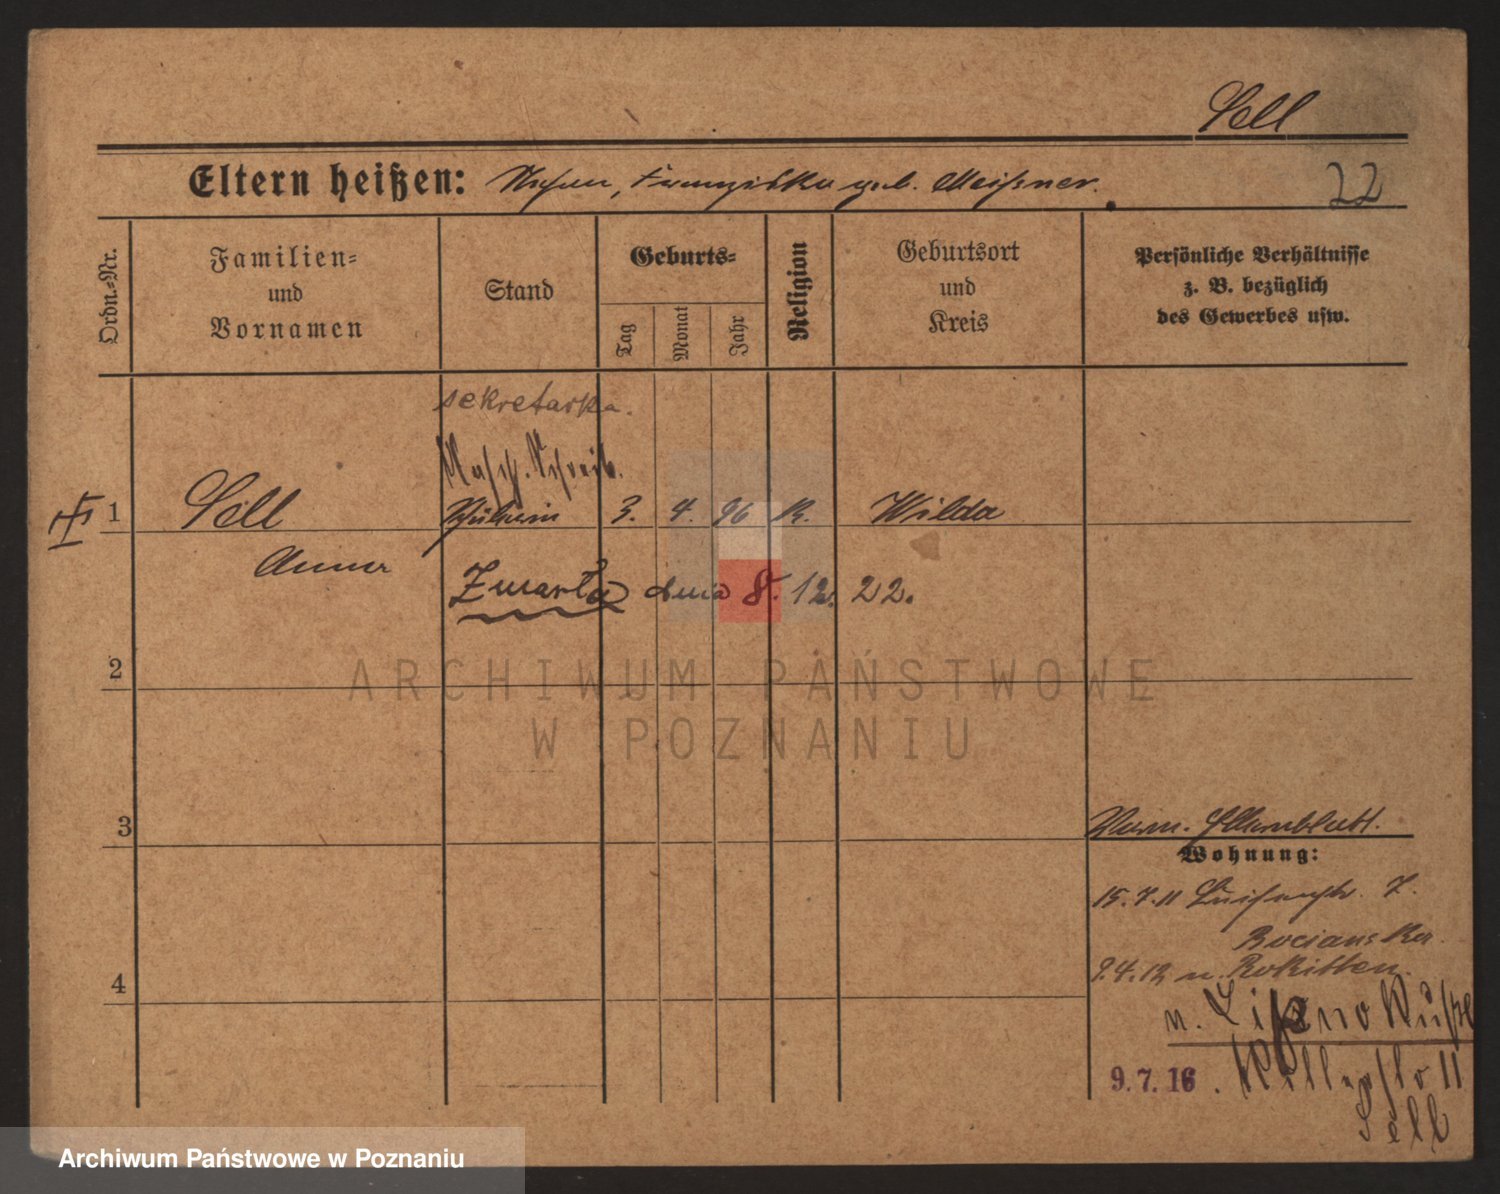 Sell
Eltern heißen: Stefan, Franziska geb. Meißner.
22
Ordn.-Nr.
Familien-
und
Vornamen
Stand
Geburts-
Tag
Monat
Jahr
Religion
Geburtsort
und
Kreis
Persönliche Verhältnisse
z. B. bezüglich
des Gewerbes usw.
sekretarka.
Masch. Schreib.
1 Sell Schülerin 3. 4. 96 K. Wilda
Anna
Zmarła dnia 8. 12. 22.
2
ARCHIWUM PAŃSTWOWE
W POZNANIU
3
Verm. Elternblatt.
Wohnung:
15.7.11 Luisenstr. 7.
Bocianska.
4
9.4.12 n. Rokitten.
n.
9.7.16.
Sell
Archiwum Państwowe w Poznaniu